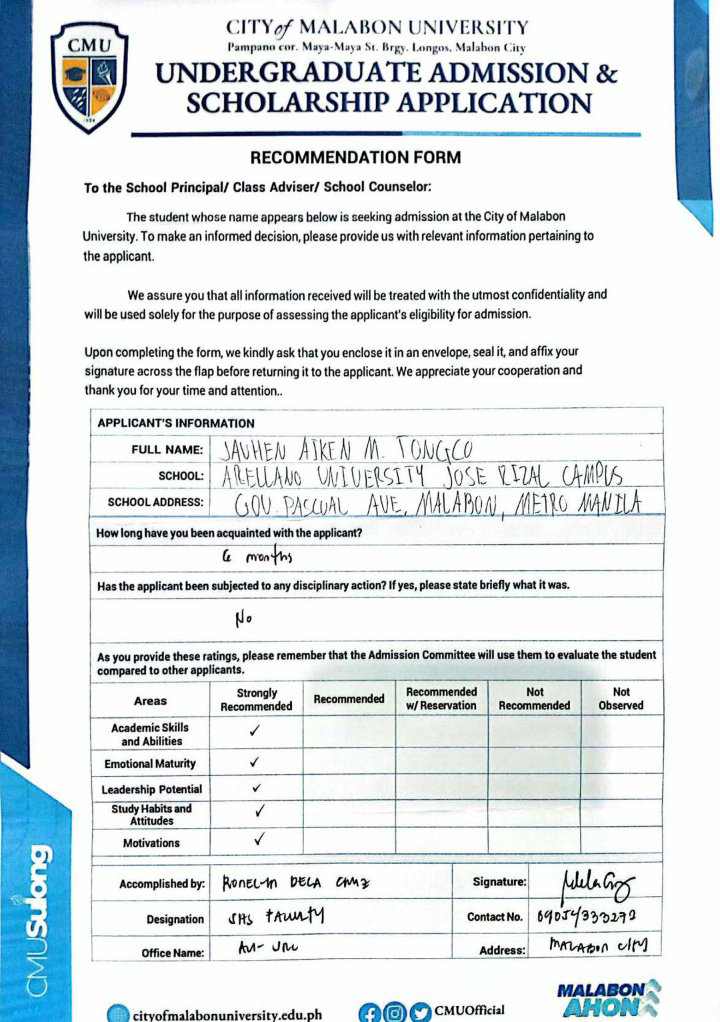 CMU
CITY of MALABON UNIVERSITY
Pampano cor. Maya-Maya St. Brgy. Longos, Malabon City
UNDERGRADUATE ADMISSION &
SCHOLARSHIP APPLICATION
RECOMMENDATION FORM
To the School Principal/ Class Adviser/ School Counselor:
The student whose name appears below is seeking admission at the City of Malabon
University. To make an informed decision, please provide us with relevant information pertaining to
the applicant.
We assure you that all information received will be treated with the utmost confidentiality and
will be used solely for the purpose of assessing the applicant's eligibility for admission.
Upon completing the form, we kindly ask that you enclose it in an envelope, seal it, and affix your
signature across the flap before returning it to the applicant. We appreciate your cooperation and
thank you for your time and attention..
APPLICANT'S INFORMATION
FULL NAME: JAUHEN AIKEN M. TONGCO
SCHOOL: ARELLANO UNIVERSITY JOSE RIZAL CAMPUS
SCHOOL ADDRESS: GOV. PASCUAL AVE, MALABON, METRO MANILA
How long have you been acquainted with the applicant?
6 months
Has the applicant been subjected to any disciplinary action? If yes, please state briefly what it was.
No
As you provide these ratings, please remember that the Admission Committee will use them to evaluate the student
compared to other applicants.
Areas Strongly Recommended Recommended Recommended w/ Reservation Not Recommended Not Observed
Academic Skills and Abilities ✓
Emotional Maturity ✓
Leadership Potential ✓
Study Habits and Attitudes ✓
Motivations ✓
Accomplished by: RONEL-IN DELA CRUZ Signature:
Designation SHS FACULTY Contact No.
Office Name: AU- JRC Address: MALABON CITY
CMUSulong
cityofmalabonuniversity.edu.ph CMUOfficial
MALABON
AHON